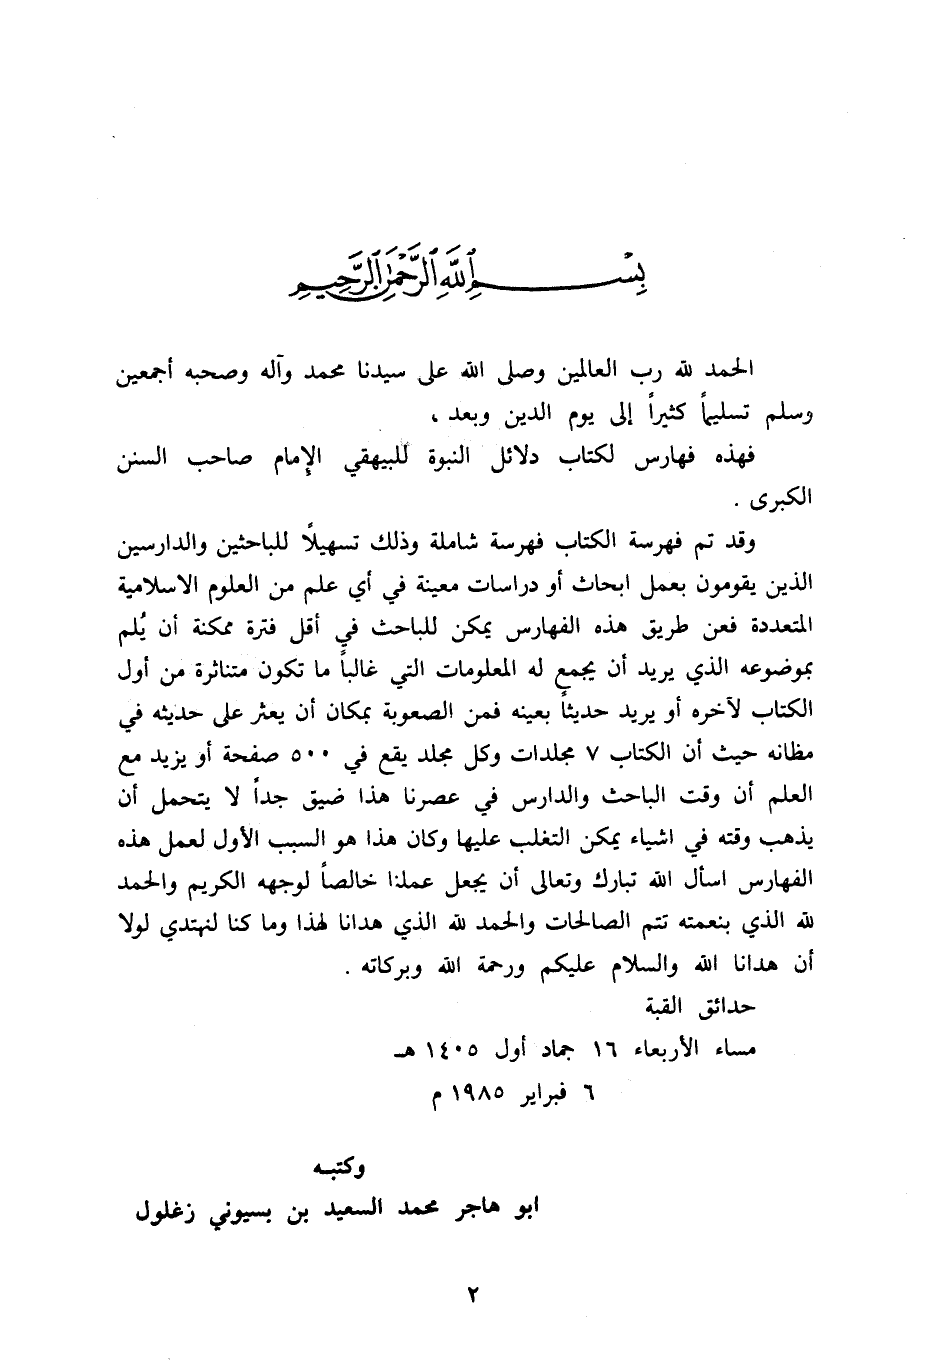 بِسْمِ اللهِ الرَّحْمٰنِ الرَّحِيمِ
الحمد لله رب العالمين وصلى الله على سيدنا محمد وآله وصحبه أجمعين
وسلم تسليماً كثيراً إلى يوم الدين وبعد ،
فهذه فهارس لكتاب دلائل النبوة للبيهقي الإمام صاحب السنن
الكبرى .
وقد تم فهرسة الكتاب فهرسة شاملة وذلك تسهيلاً للباحثين والدارسين
الذين يقومون بعمل ابحاث أو دراسات معينة في أي علم من العلوم الاسلامية
المتعددة فعن طريق هذه الفهارس يمكن للباحث في أقل فترة ممكنة أن يُلم
بموضوعه الذي يريد أن يجمع له المعلومات التي غالباً ما تكون متناثرة من أول
الكتاب لآخره أو يريد حديثاً بعينه فمن الصعوبة بمكان أن يعثر على حديثه في
مظانه حيث أن الكتاب ٧ مجلدات وكل مجلد يقع في ٥٠٠ صفحة أو يزيد مع
العلم أن وقت الباحث والدارس في عصرنا هذا ضيق جداً لا يتحمل أن
يذهب وقته في اشياء يمكن التغلب عليها وكان هذا هو السبب الأول لعمل هذه
الفهارس اسأل الله تبارك وتعالى أن يجعل عملنا خالصاً لوجهه الكريم والحمد
لله الذي بنعمته تتم الصالحات والحمد لله الذي هدانا لهذا وما كنا لنهتدي لولا
أن هدانا الله والسلام عليكم ورحمة الله وبركاته .
حدائق القبة
مساء الأربعاء ١٦ جماد أول ١٤٠٥ هـ
٦ فبراير ١٩٨٥ م
وكتبه
ابو هاجر محمد السعيد بن بسيوني زغلول
٢